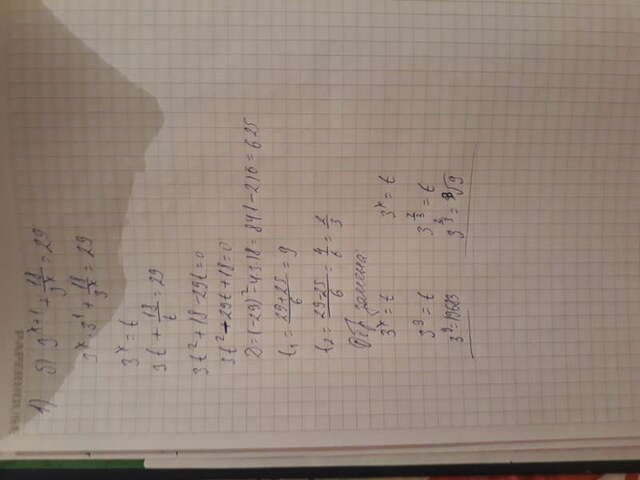 1) б) 3^{x+1} + \frac{18}{3^x} = 29
3^x · 3^1 + \frac{18}{3^x} = 29
3^x = t
3t + \frac{18}{t} = 29
3t^2 + 18 - 29t = 0
3t^2 - 29t + 18 = 0
D = (-29)^2 - 4·3·18 = 841 - 216 = 625
t_1 = \frac{29+25}{6} = 9
t_2 = \frac{29-25}{6} = \frac{4}{6} = \frac{2}{3}
замена
3^x = t 3^x = t
3^9 = t 3^{\frac{2}{3}} = t
3^9 = 19683 3^{\frac{2}{3}} = \sqrt[3]{9}